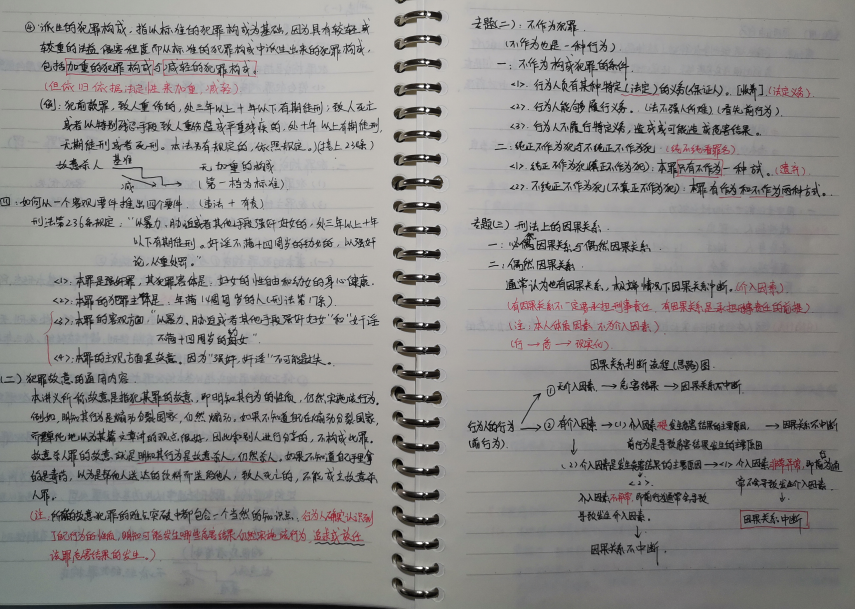 ④ 派生的犯罪构成，指以标准的犯罪构成为基础，因为具有较轻或
较重的法益侵害程度而从标准的犯罪构成中派生出来的犯罪构成，
包括加重的犯罪构成与减轻的犯罪构成。
(但依旧依据法定性来加重、减轻)
(例：犯前款罪，致人重伤的，处三年以上十年以下有期徒刑；致人死亡
或者以特别残忍手段致人重伤造成严重残疾的，处十年以上有期徒刑、
无期徒刑或者死刑。本法另有规定的，依照规定。)
故意杀人 基准 无加重的构成
减 (第一档为标准)
四：如何从一个客观事件推出四个要件.
刑法第236条规定："以暴力、胁迫或者其他手段强奸妇女的，处三年以上十年
以下有期徒刑。奸淫不满十四周岁的幼女的，以强奸
论，从重处罚。"
<1>：本罪是强奸罪，其犯罪客体是：妇女的性自由和幼女的身心健康.
<2>：本罪的犯罪主体是：年满14周岁的人(刑法第17条).
<3>：本罪的客观方面："以暴力、胁迫或者其他手段强奸妇女"和"奸淫
不满十四周岁的幼女".
<4>：本罪的主观方面是故意。因为"强奸、奸淫"不可能过失。
(二) 犯罪故意的通用内容.
本讲义所称故意是指犯某罪的故意，即明知其行为的性质，仍然实施该行为。
例如，明知其行为是煽动分裂国家，仍然煽动，如果不知道他在煽动分裂国家，
而单纯地以为某篇文章讲的观点很好，因此拿到人进行分享的，不构成犯罪。
故意杀人罪的故意，就是明知其行为是故意杀人，仍然杀人。如果不知道盒子里拿
的是毒药，以为是帮他人送达的饮料而送给他人，致人死亡的，不能成立故意杀
人罪。
(注：所有的故意犯罪的难点突破中都包含一个当然的知识点：行为人确实认识到
了他行为的性质，明知可能发生哪些危害结果仍然实施该行为，追求或放任
该罪危害结果的发生。)
专题(二)：不作为犯罪.
(不作为也是一种行为)
一：不作为构成犯罪的条件.
<1>：行为人负有某种特定(法定)的义务(保证人)。(法定义务).
<2>：行为人能够履行义务。(法不强人所难)(看先前行为).
<3>：行为人不履行特定义务，造成或可能造成危害结果。
二：纯正不作为犯与不纯正不作为犯
<1>：纯正不作为犯(真正不作为犯)：本罪只有不作为一种方式。(遗弃)
<2>：不纯正不作为犯(不真正不作为犯)：本罪有行为和不作为两种方式。
专题(三) 刑法上的因果关系.
一：必然因果关系与偶然因果关系.
二：偶然因果关系.
通常认为也有因果关系，极端情况下因果关系中断。(介入因素)
(有因果关系不一定要承担刑事责任，有因果关系是承担刑事责任的前提)
(注：本人体质因素，不为介入因素)
(行 → 危 → 现实化)
因果关系判断流程(思路)图.
① 无介入因素 → 危害结果 → 因果关系不中断.
行为人的行为
(前行为)
② 有介入因素 → (1) 介入因素是发生危害结果的主要原因. → 因果关系不中断
前行为是导致危害结果发生的主要原因
(2) 介入因素是发生危害结果的主要原因 → <1> 介入因素非常异常，即前行为通
常不会导致发生介入因素.
<2>.
介入因素不异常，即前行为通常会导致
导致发生介入因素。
因果关系中断
因果关系不中断.